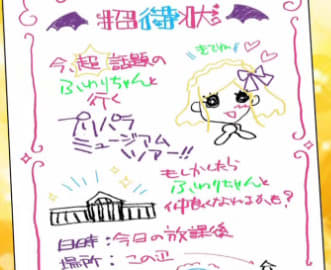 招待状
今、超話題の
ふわりちゃんと
行く
プリパラ
ミュージアム
ツアー!!
きてね
もしかしたら
ふわりちゃんと
仲良くなれるかも?
日時：今日の放課後
場所：この辺